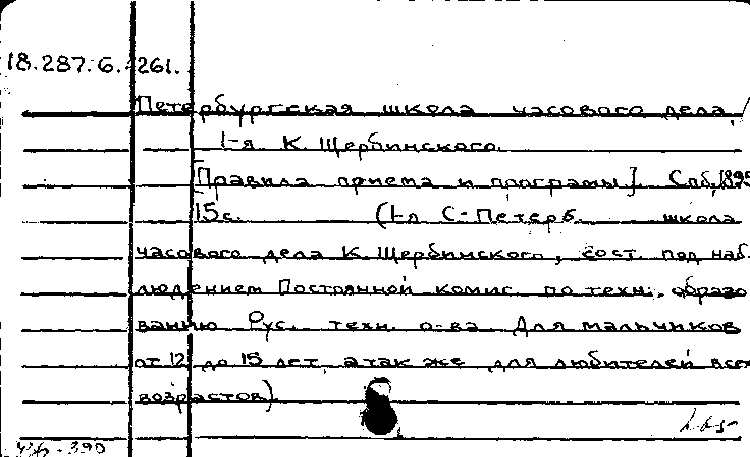 18.287.6.261.
Петербургская школа часового дела,
1-я К Щербинского.
[Правила приема и програмы]. Спб, 1895
15с. (1-я С-Петерб. школа
часового дела К. Щербинского, сост. под наб.
людением Постоянной комис. по техн. образо
ванию Рус. техн. о-ва Для мальчиков
от 12 до 15 лет, а так же для любителей всех
возрастов)